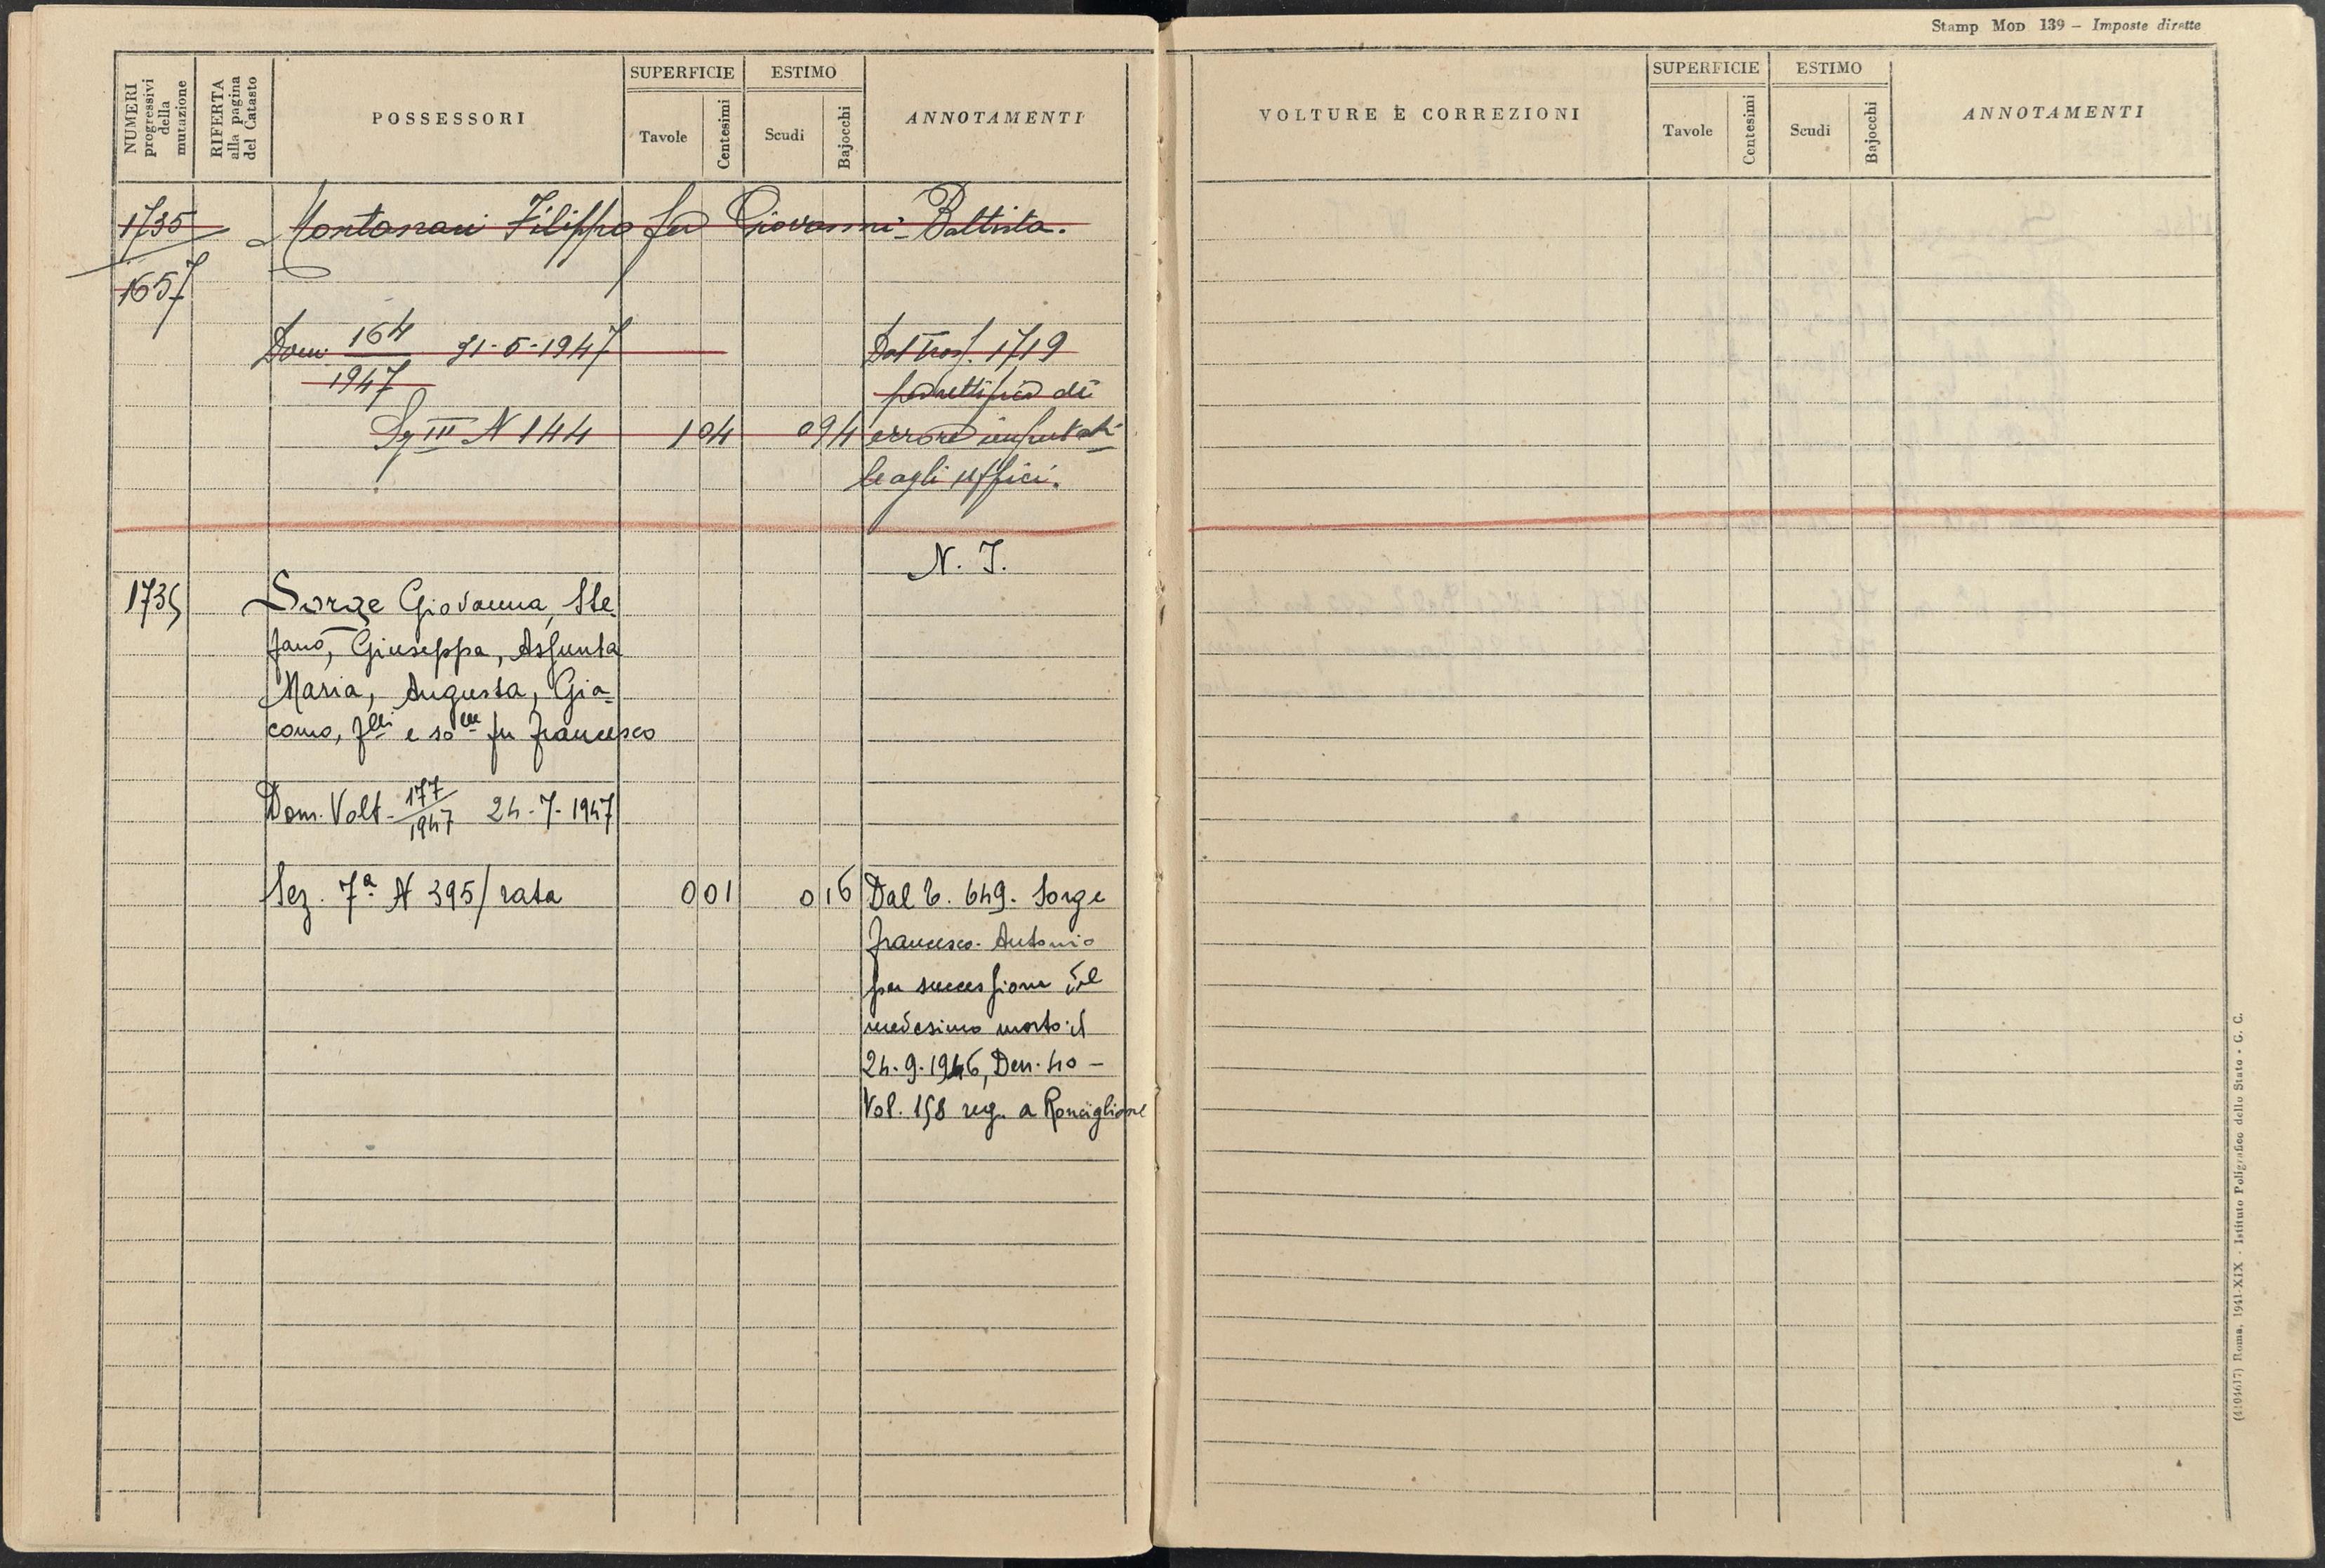 Stamp Mod 139 – Imposte dirette
NUMERI progressivi della mutazione
RIFERTA alla pagina del Catasto
POSSESSORI
SUPERFICIE
Tavole
Centesimi
ESTIMO
Scudi
Bajocchi
ANNOTAMENTI
1735 Montanari Filippo fu Giovanni-Battista.
1657
Dom. 164/1947 31-5-1947 Dal Trasf. 1719
per rettifica di
Sez III N 144 1 04 0 94 errore imputabi
le agli Uffici.
N. I.
1735 Sorge Giovanna, Ste-
fano, Giuseppa, Assunta
Maria, Augusta, Gia-
como, flli e so.lle fu Francesco
Dom. Volt. 177/1947 24-7-1947
Sez. 7ª N 395/rata 0 01 0 16 Dal T. 649. Sorge
Francesco-Antonio
per successione del
medesimo morto il
24.9.1946, Den. 40 –
Vol. 158 reg. a Ronciglione
VOLTURE E CORREZIONI
SUPERFICIE
Tavole
Centesimi
ESTIMO
Scudi
Bajocchi
ANNOTAMENTI
(4104617) Roma, 1941-XIX - Istituto Poligrafico dello Stato - G. C.